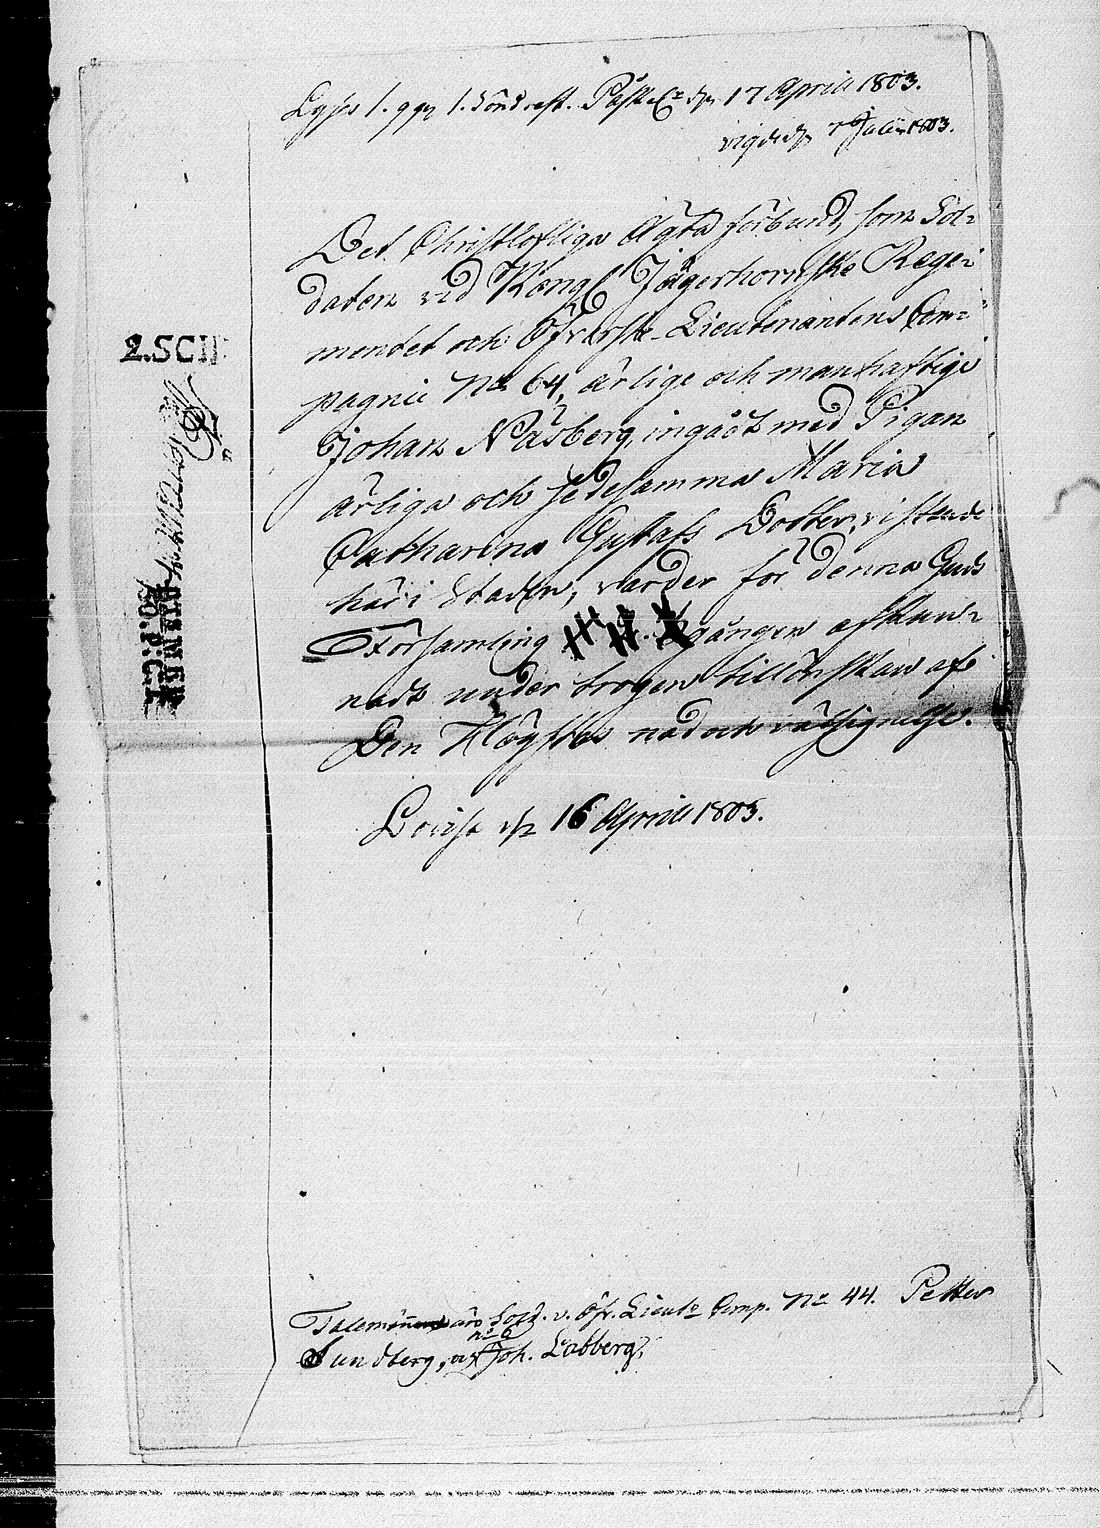 Lyses 1. ggn 1. Sönd. eft. Påsk 17 Aprill 1803.
vigde 7 Julii 1803.
Det Christlofliga Ägta förbund, som Sol-
daten vid Kongl Jägerhornske Rege-
mentet och Öfverste-Lieutenantens Com-
pagnie No 64, ärlige och manhaftige
Johan Näsberg, ingådt med Pigan
ärliga och sedesamma Maria
Catharina Gustafs Dotter, vistande
här i Staden, varder för denna Guds
Församling gången afkun-
nadt under trogen tillönskan af
Den Högstes nåd och välsignelse.
Lovisa 16 Aprill 1803.
Talemän äro Sold. v. Öfv. Lieut. Comp. No 44. Petter
no 6
Sundberg, Joh. Labberg,
2.SCI